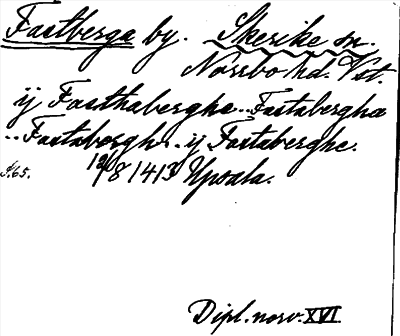 Fastberga by. Skerike sn.
Norrbo hd. Vst.
ij Fasthaberghe.. Fastabergha
.. Fastabergh.. ij Fastaberghe.
S. 65. 12/8 1413 Upsala.
Dipl. norv. XVI